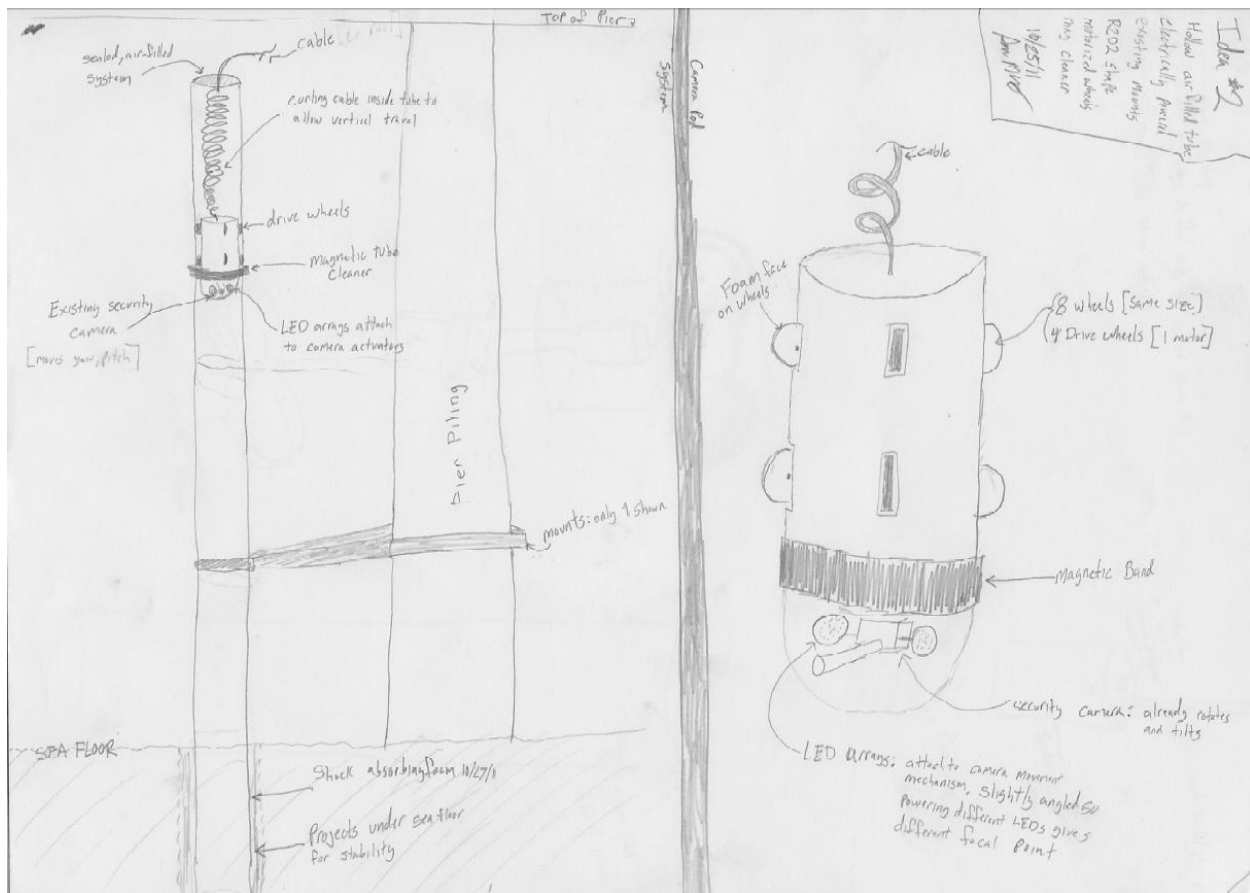 Top of Pier
cable
sealed, air-filled
system
curling cable inside tube to
allow vertical travel
drive wheels
magnetic tube
cleaner
Existing security
camera
[moves yaw, pitch]
LED arrays attach
to camera actuators
Pier Piling
mounts: only 1 shown
SEA FLOOR
Shock absorbing foam 10/27/11
Projects under sea floor
for stability
System
Camera Pod
Idea #2
Hollow air filled tube
Electrically powered
Existing mounts
R2D2 shape
motorized wheels
mag cleaner
10/25/11
cable
Foam face
on wheels
8 wheels [same size]
4 Drive wheels [1 motor]
Magnetic Band
security camera: already rotates
and tilts
LED arrays: attach to camera movement
mechanism, slightly angled so
powering different LEDs gives
different focal point